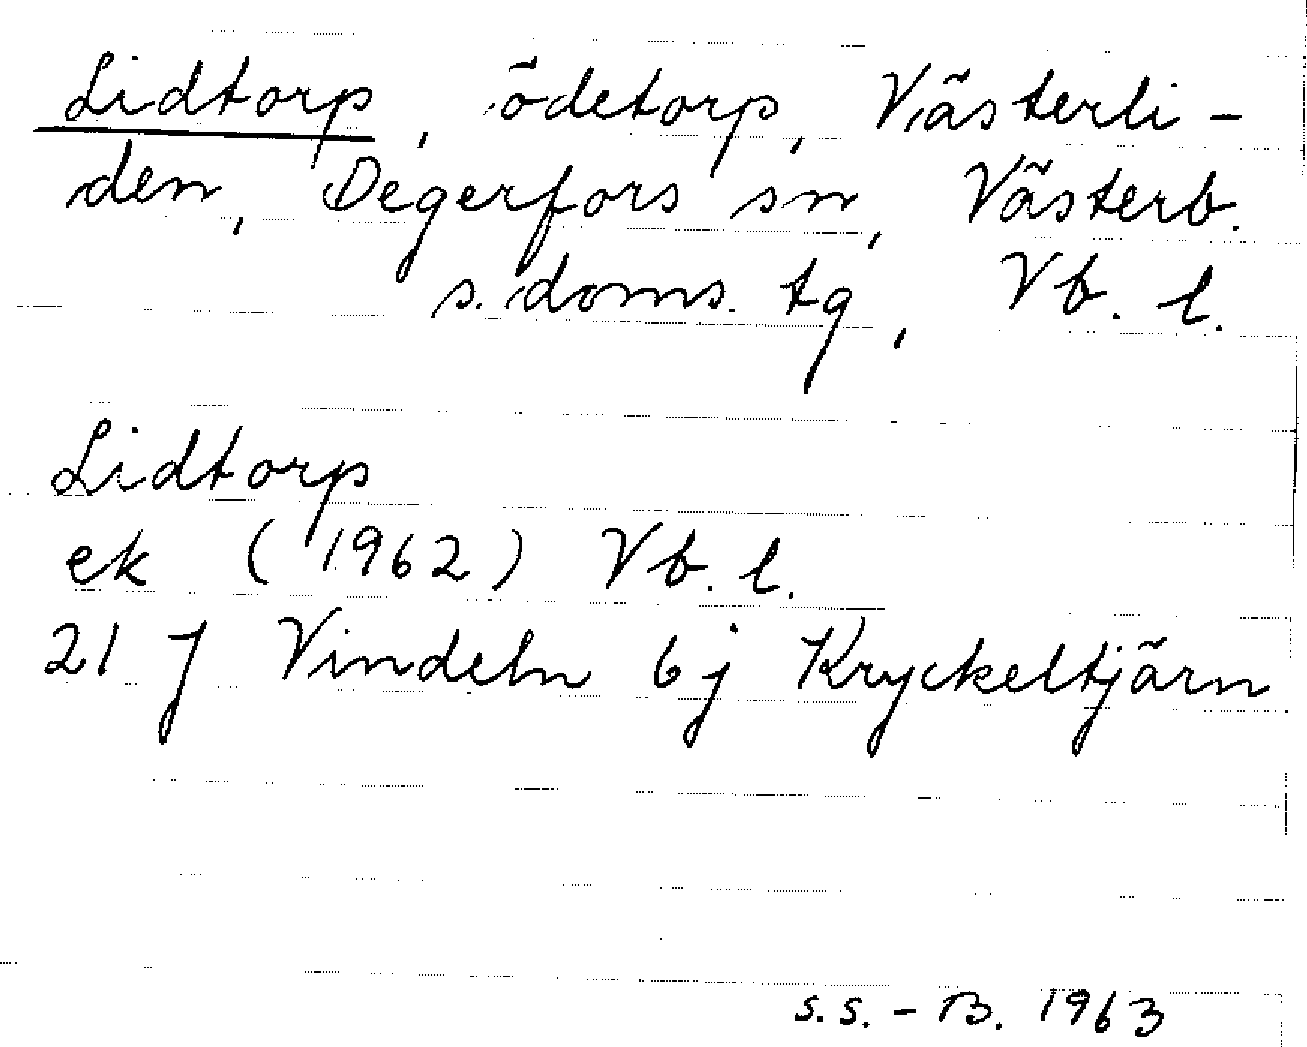 Lidtorp, ödetorp, Västerli-
den, Degerfors sn, Västerb.
s. doms. tg, Vb. l.
Lidtorp
ek (1962) Vb. l.
21 J Vindeln 6 j Kryckeltjärn
s.s. - B. 1963